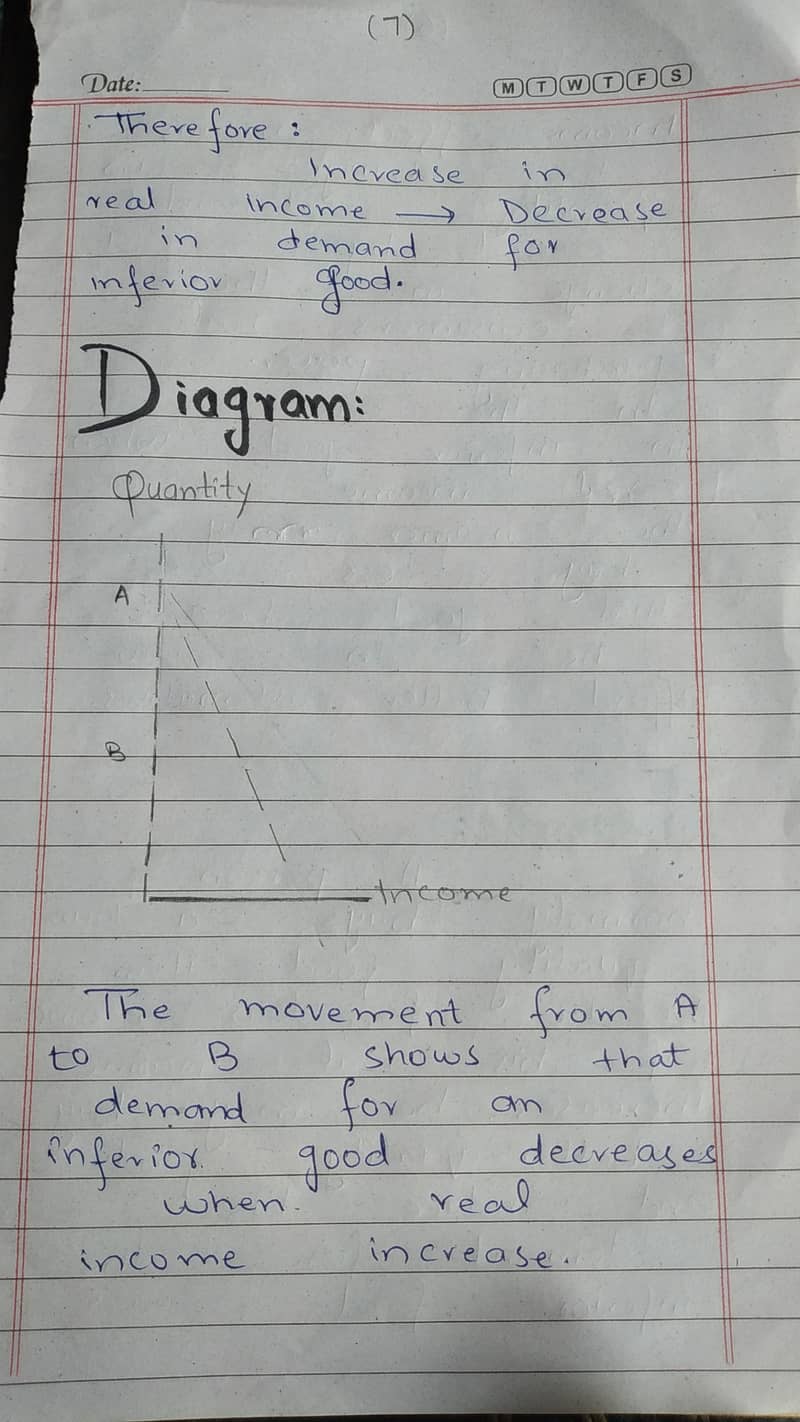 (7)
Date:
M T W T F S
Therefore :
Increase in
real income → Decrease
in demand for
inferior good.
Diagram:
Quantity
A
B
Income
The movement from A
to B shows that
demand for an
inferior good decreases
when. real
income increase.